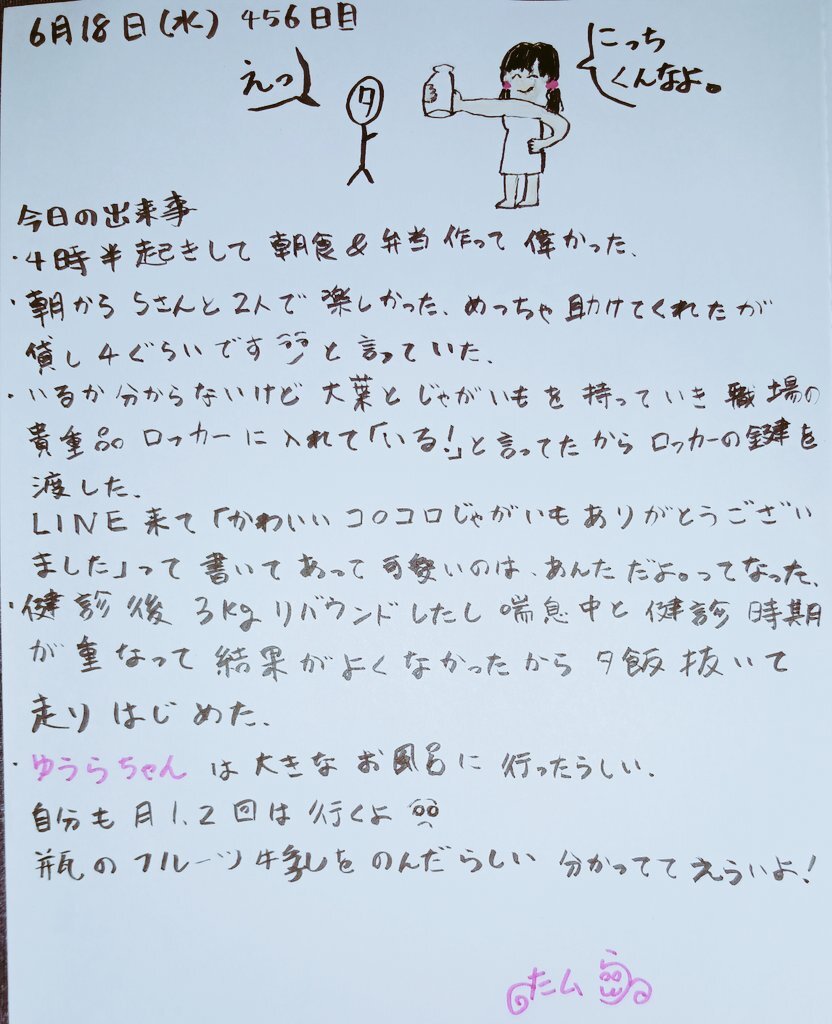 6月18日(水) 456日目
えっ
タ
にっち
くんなよ。
今日の出来事
・4時半起きして 朝食&弁当 作って 偉かった、
・朝から Sさんと2人で 楽しかった、めっちゃ 助けてくれたが
貸し4ぐらいです と言っていた、
・いるか分からないけど 大葉とじゃがいもを 持っていき 職場の
貴重品 ロッカーに入れて「いる!」と言ってたから ロッカーの鍵を
渡した、
LINE 来て「かわいい コロコロじゃがいも ありがとうござい
ました」って 書いてあって 可愛いのは、あんただよ。ってなった、
・健診後 3kg リバウンドしたし 喘息中と 健診 時期
が 重なって 結果がよくなかったから 夕飯 抜いて
走り はじめた、
・ゆうらちゃん は 大きな お風呂に 行ったらしい、
自分も 月1、2回は 行くよ
瓶の フルーツ牛乳を のんだらしい 分かってて えらいよ!
たム